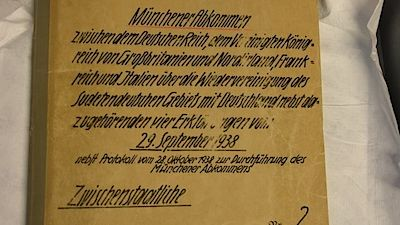 Münchener Abkommen
zwischen dem Deutschen Reich, dem Vereinigten König-
reich von Großbritanien und Nordirland, Frank-
reich und Italien über die Wiedervereinigung des
Sudetendeutschen Gebiets mit Deutschland nebst da-
zugehörenden vier Erklärungen vom
29. September 1938
nebst Protokoll vom 28. Oktober 1938 zur Durchführung des
Münchener Abkommens
Zwischenstaatliche
2